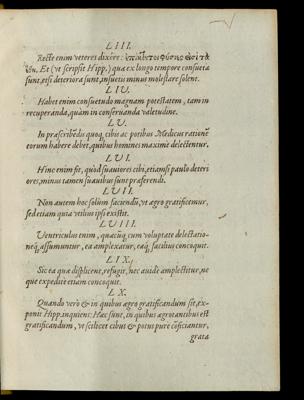 LIII.
Recte enim veteres dixêre:
ὧν. Et (vt scripsit Hipp.) quæ ex longo tempore consueta
sunt, etsi deteriora sunt, insuetis minus molestare solent.
LIV.
Habet enim consuetudo magnam potestatem, tam in
recuperanda, quàm in conseruanda valetudine.
LV.
In præscribẽdis quoq, cibis ac potibus Medicus rationẽ
eorum habere debet, quibus homines maximè delectentur.
LVI.
Hinc enim fit, quòd suauiores cibi, etiamsi paulò deteri
ores, minus tamen suauibus sunt præferendi.
LVII.
Non autem hoc solùm faciendũ, vt ægro gratificemur,
sed etiam quia vtilius ipsi existit.
LVIII.
Ventriculus enim, quæcũq, cum voluptate delectatio-
neq́, assumuntur, ea amplexatur, eaq́, facilius concoquit.
LIX.
Sic ea quæ displicent, refugit, nec auidè amplectitur, ne
que expeditè etiam concoquit.
LX.
Quando verò & in quibus ægro gratificandum sit, ex-
ponit Hipp. inquiens: Hæc sunt, in quibus ægrotantibus est
gratificandum, vt scilicet cibus & potus purè cõficiantur,
grata